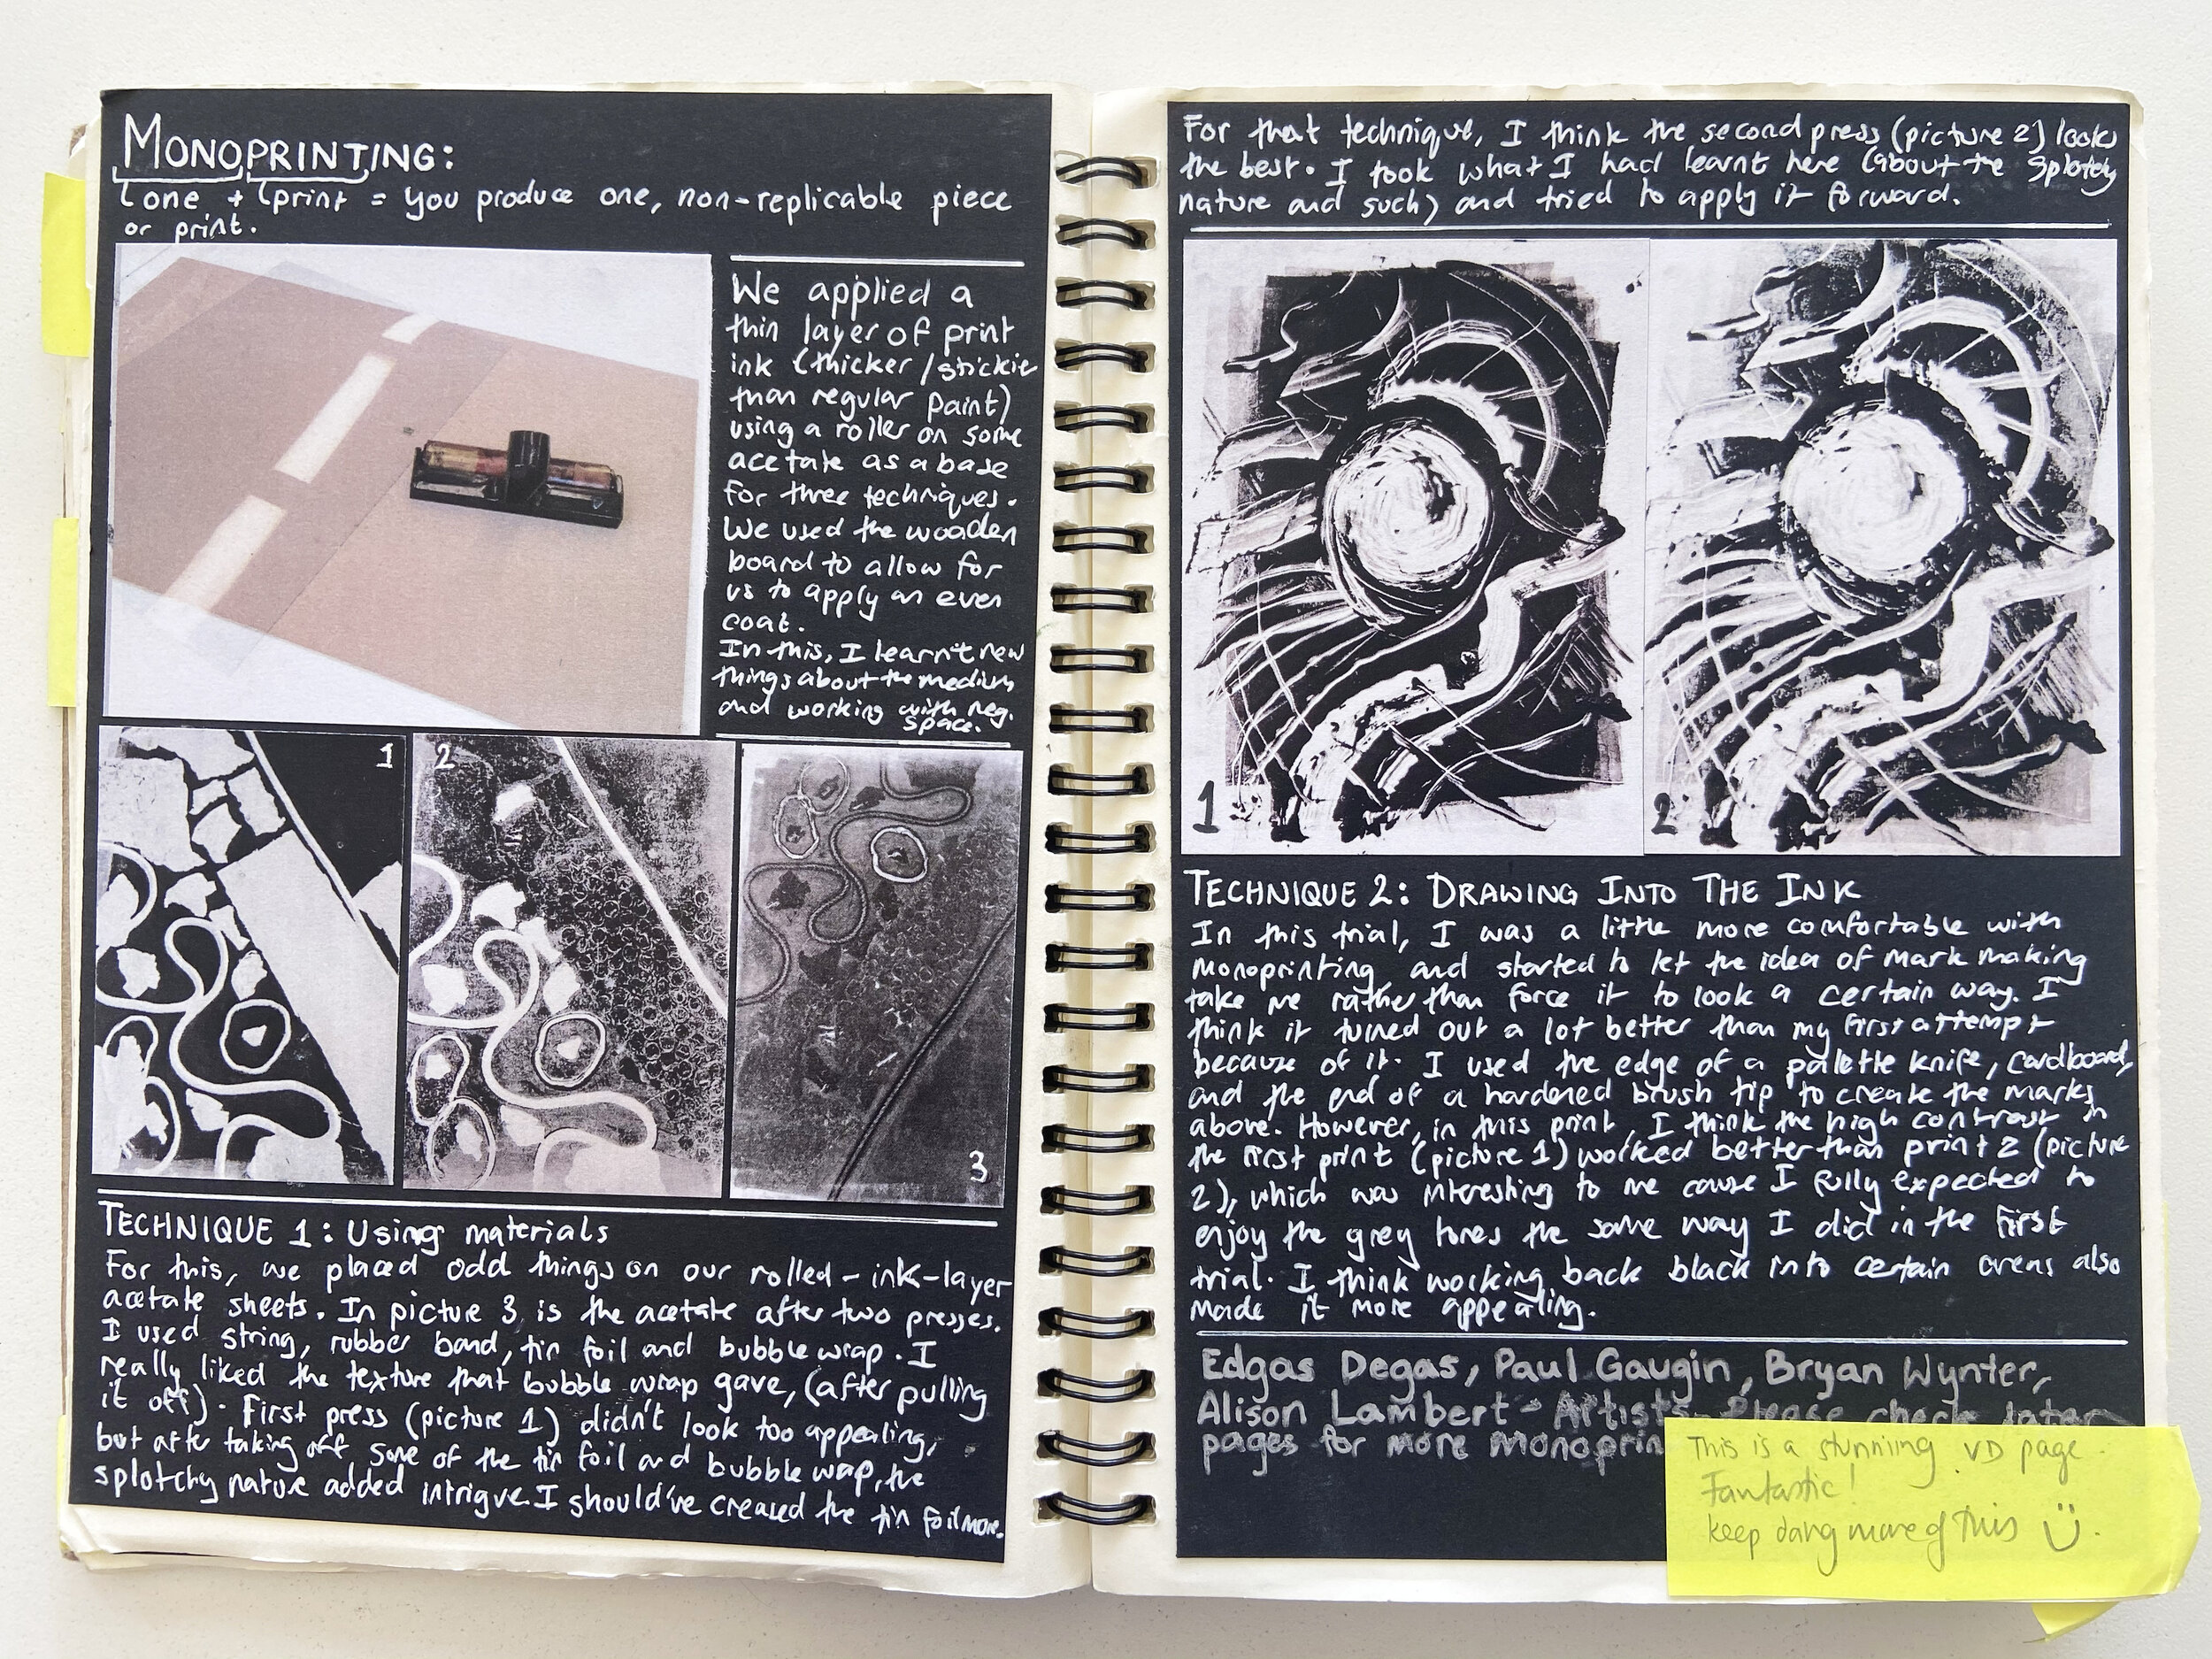 MONOPRINTING:
one + print = you produce one, non-replicable piece
or print.
We applied a
thin layer of print
ink (thicker/stickier
than regular paint)
using a roller on some
acetate as a base
for three techniques.
We used the wooden
board to allow for
us to apply an even
coat.
In this, I learnt new
things about the medium
and working with neg.
space.
1
2
3
TECHNIQUE 1: Using materials
For this, we placed odd things on our rolled-ink-layer
acetate sheets. In picture 3, is the acetate after two presses.
I used string, rubber band, tin foil and bubble wrap. I
really liked the texture that bubble wrap gave, (after pulling
it off). First press (picture 1) didn't look too appealing,
but after taking off some of the tin foil and bubble wrap, the
splotchy nature added intrigue. I should've creased the tin foil more.
For that technique, I think the second press (picture 2) looks
the best. I took what I had learnt here (about the splotchy
nature and such) and tried to apply it forward.
1
2
TECHNIQUE 2: DRAWING INTO THE INK
In this trial, I was a little more comfortable with
monoprinting and started to let the idea of mark making
take me rather than force it to look a certain way. I
think it turned out a lot better than my first attempt
because of it. I used the edge of a pallette knife, cardboard,
and the end of a hardened brush tip to create the marks
above. However, in this print, I think the high contrast in
the first print (picture 1) worked better than print 2 (picture
2), which was interesting to me cause I fully expected to
enjoy the grey tones the same way I did in the first
trial. I think working back black into certain areas also
made it more appealing.
Edgas Degas, Paul Gaugin, Bryan Wynter,
Alison Lambert - Artists. Please check later
pages for more monoprin
This is a stunning VD page.
Fantastic!
keep doing more of this